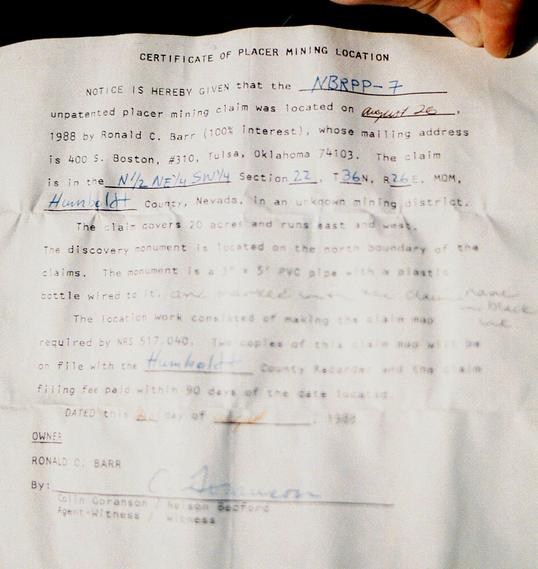 CERTIFICATE OF PLACER MINING LOCATION
NOTICE IS HEREBY GIVEN that the NBRPP-7
unpatented placer mining claim was located on August 26,
1988 by Ronald C. Barr (100% interest), whose mailing address
is 400 S. Boston, #310, Tulsa, Oklahoma 74103. The claim
is in the N1/2 NE1/4 SW1/4 Section 22, T36N, R26E, MDM,
Humboldt County, Nevada, in an unknown mining district.
The claim covers 20 acres and runs east and west.
The discovery monument is located on the north boundary of the
claims. The monument is a 3" x 5' PVC pipe with a plastic
bottle wired to it, and marked with the claim name
in black
ink
The location work consisted of making the claim map
required by NRS 517.040. Two copies of this claim map will be
on file with the Humboldt County Recorder and the claim
filing fee paid within 90 days of the date located.
DATED this day of , 1988
OWNER
RONALD C. BARR
By: C Goranson
Colin Goranson / Nelson Bedford
Agent-Witness / Witness